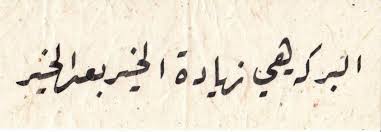 البركه هي زيادة الخير بعد الخير